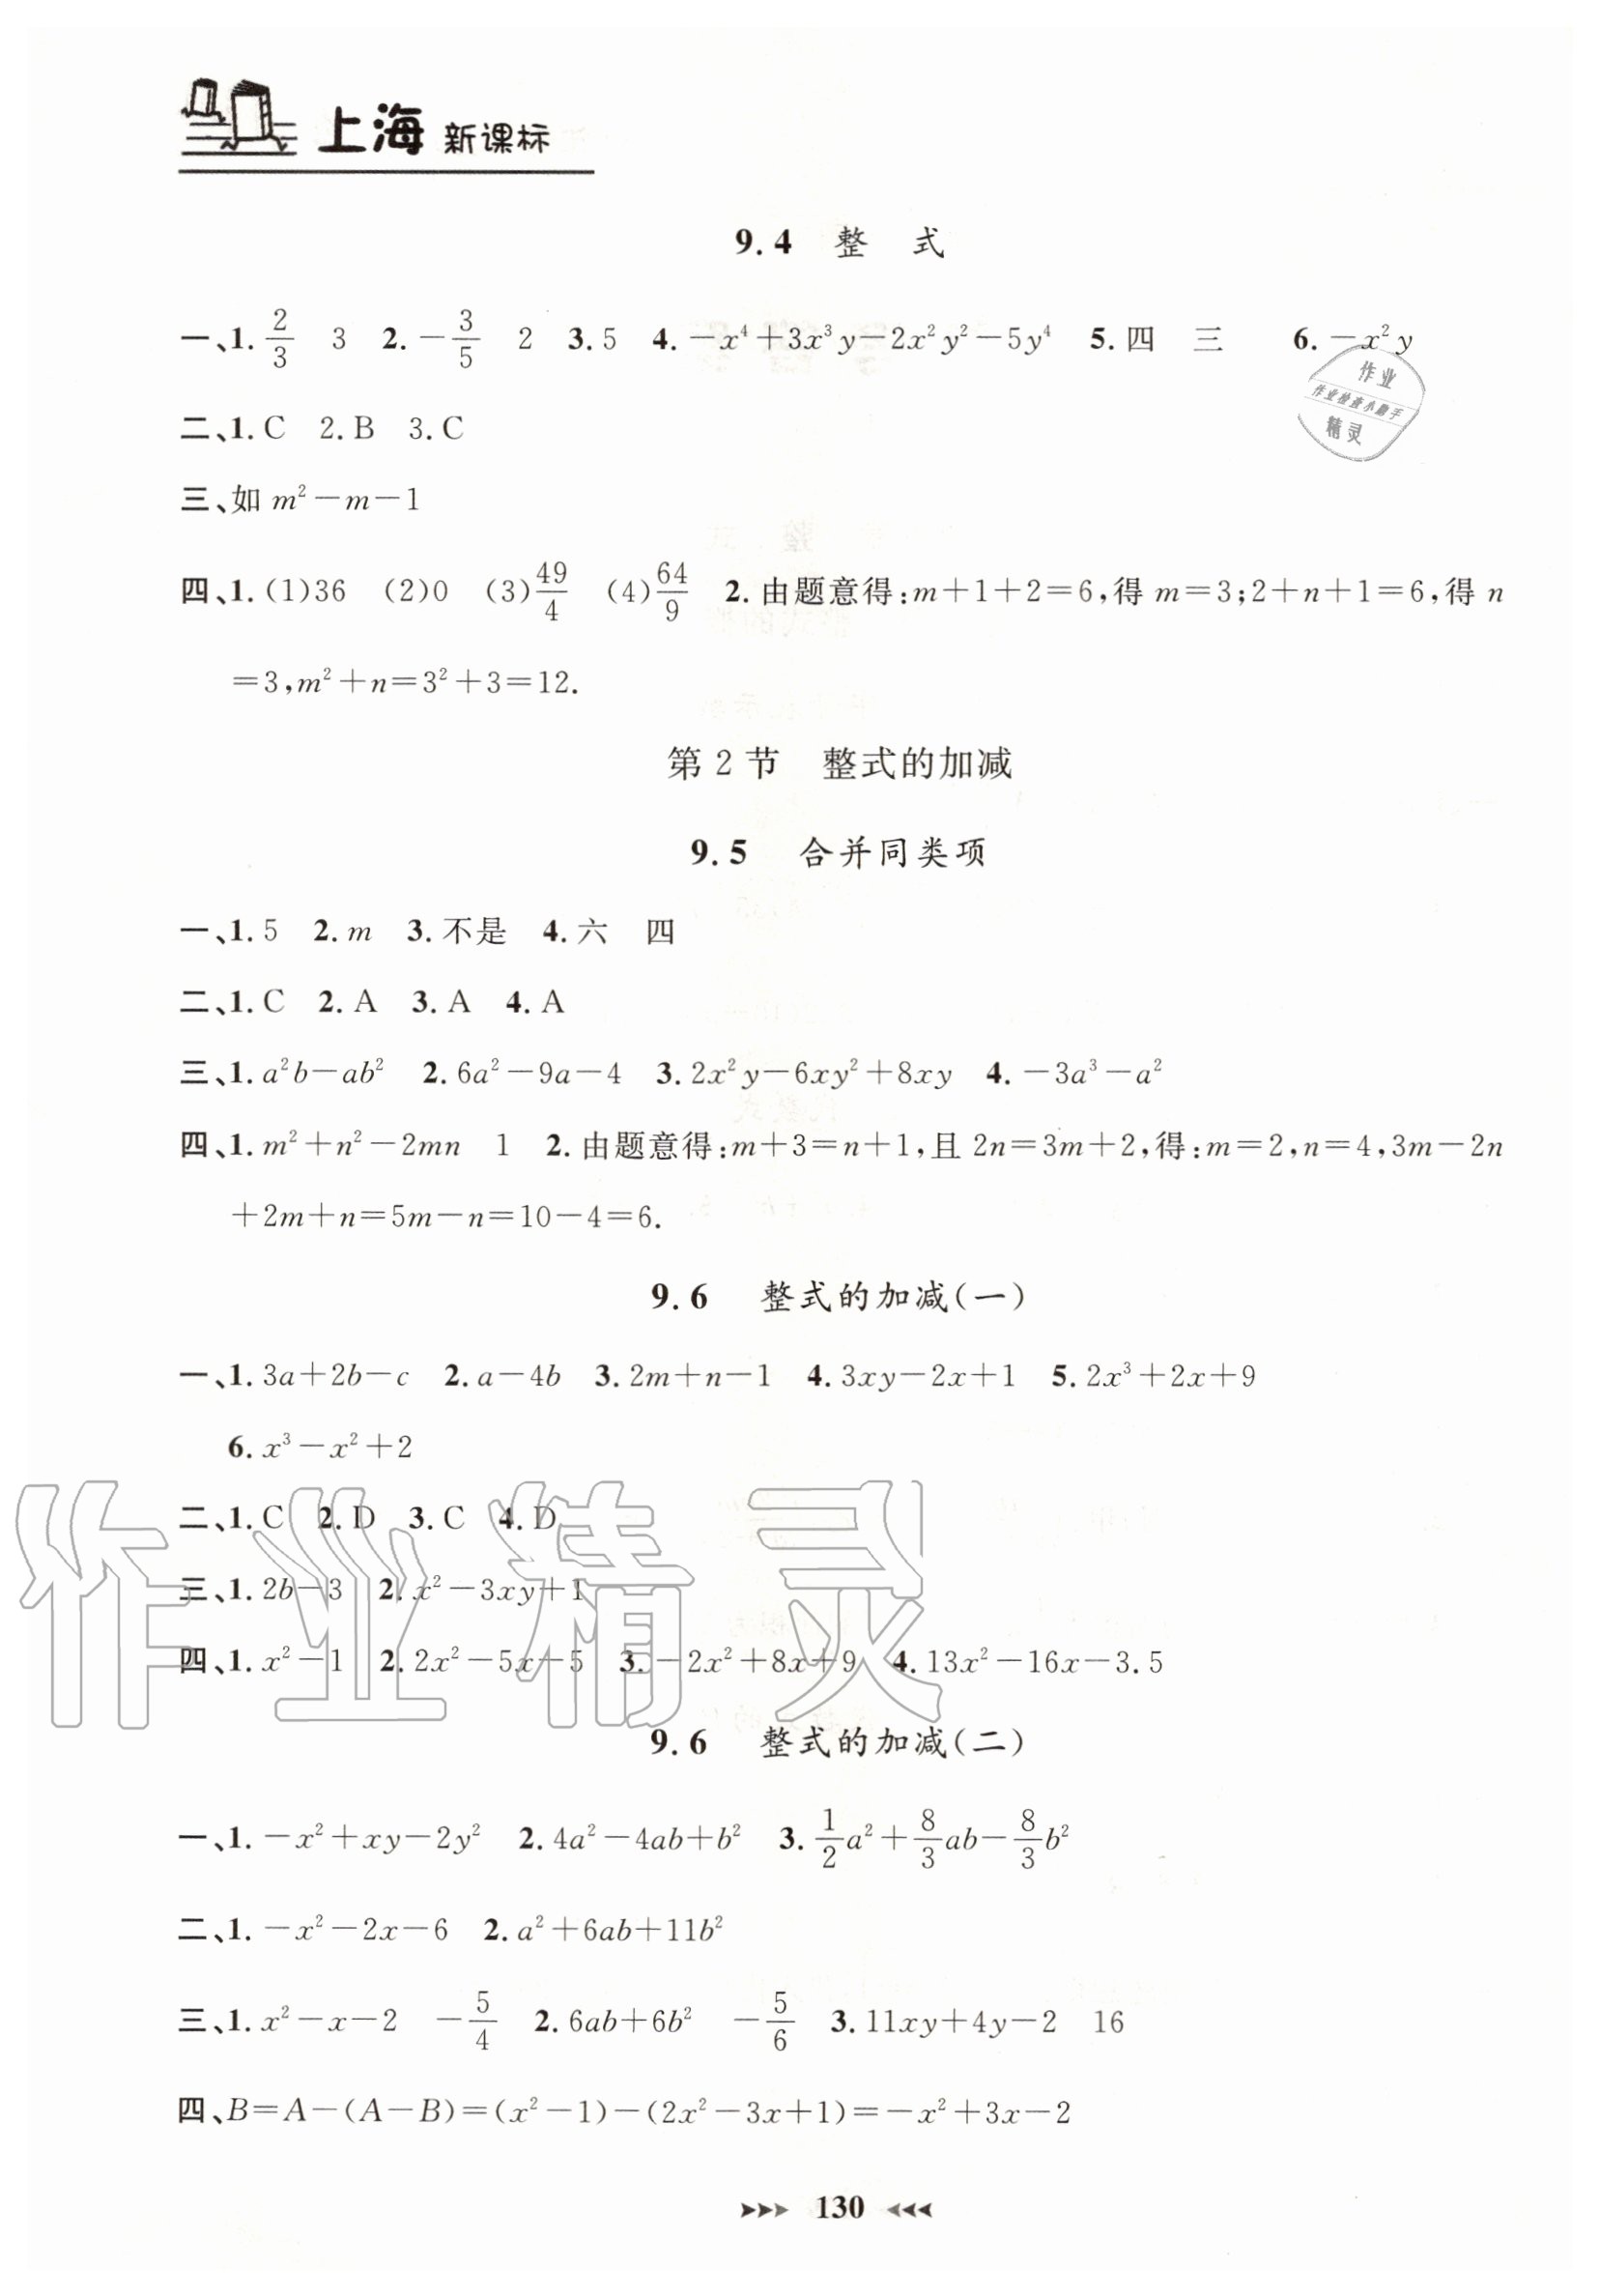 上海 新课标
9.4 整 式
一、1. 2/3 3 2. －3/5 2 3. 5 4. －x⁴＋3x³y－2x²y²－5y⁴ 5. 四 三 6. －x²y
作业
作业检查小助手
精灵
二、1. C 2. B 3. C
三、如 m²－m－1
四、1. (1)36 (2)0 (3)49/4 (4)64/9 2. 由题意得:m＋1＋2＝6,得 m＝3;2＋n＋1＝6,得 n
＝3,m²＋n＝3²＋3＝12.
第 2 节 整式的加减
9.5 合并同类项
一、1. 5 2. m 3. 不是 4. 六 四
二、1. C 2. A 3. A 4. A
三、1. a²b－ab² 2. 6a²－9a－4 3. 2x²y－6xy²＋8xy 4. －3a³－a²
四、1. m²＋n²－2mn 1 2. 由题意得:m＋3＝n＋1,且 2n＝3m＋2,得:m＝2,n＝4,3m－2n
＋2m＋n＝5m－n＝10－4＝6.
9.6 整式的加减(一)
一、1. 3a＋2b－c 2. a－4b 3. 2m＋n－1 4. 3xy－2x＋1 5. 2x³＋2x＋9
6. x³－x²＋2
二、1. C 2. D 3. C 4. D
三、1. 2b－3 2. x²－3xy＋1
四、1. x²－1 2. 2x²－5x－5 3. －2x²＋8x＋9 4. 13x²－16x－3.5
作业精灵
9.6 整式的加减(二)
一、1. －x²＋xy－2y² 2. 4a²－4ab＋b² 3. 1/2a²＋8/3ab－8/3b²
二、1. －x²－2x－6 2. a²＋6ab＋11b²
三、1. x²－x－2 －5/4 2. 6ab＋6b² －5/6 3. 11xy＋4y－2 16
四、B＝A－(A－B)＝(x²－1)－(2x²－3x＋1)＝－x²＋3x－2
130